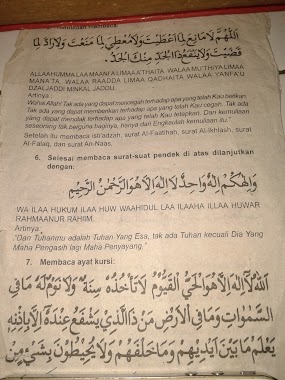 اَللّٰهُمَّ لَامَانِعَ لِمَا اَعْطَيْتَ وَلَامُعْطِيَ لِمَا مَنَعْتَ وَلَارَادَّ لِمَا
قَضَيْتَ وَلَايَنْفَعُ ذَاالْجَدِّ مِنْكَ الْجَدُّ.
ALLAAHUMMA LAA MAANI A LIMAA A'THAITA WALAA MU'THIYA LIMAA
MANA'TA, WALAA RAADDA LIMAA QADHAITA WALAA YANFA'U
DZALJADDI MINKAL JADDU.
Artinya :
Wahai Allah! Tak ada yang dapat mencegah terhadap apa yang telah Kau berikan
Tak ada yang dapat memberikan terhadap apa yang telah Kau cegah. Tak ada
yang dapat menolak terhadap apa yang telah Kau tetapkan. Dan kemuliaan
seseorang tak berguna baginya, hanya dari Engkaulah kemuliaan itu."
Setelah itu membaca isti'adzah, surat Al-Faatihah, surat Al-Ikhlash, surat
Al-Falaq, dan surat An-Naas.
6. Selesai membaca surat-suat pendek di atas dilanjutkan
dengan:
وَاِلٰهُكُمْ اِلٰهٌ وَاحِدٌ لَااِلٰهَ اِلَّا هُوَ الرَّحْمٰنُ الرَّحِيْمُ
WA ILAA HUKUM ILAA HUW WAAHIDUL LAA ILAAHA ILLAA HUWAR
RAHMAANUR RAHIIM.
Artinya :
"Dan Tuhanmu adalah Tuhan Yang Esa, tak ada Tuhan kecuali Dia Yang
Maha Pengasih lagi Maha Penyayang."
7. Membaca ayat kursi:
اَللّٰهُ لَااِلٰهَ اِلَّا هُوَ الْحَيُّ الْقَيُّوْمُ لَاتَأْخُذُهُ سِنَةٌ وَلَا نَوْمٌ لَهُ مَافِى
السَّمٰوَاتِ وَمَافِى الْاَرْضِ مَنْ ذَاالَّذِيْ يَشْفَعُ عِنْدَهُ اِلَّا بِاِذْنِهِ
يَعْلَمُ مَا بَيْنَ اَيْدِيْهِمْ وَمَاخَلْفَهُمْ وَلَايُحِيْطُوْنَ بِشَيْءٍ مِنْ